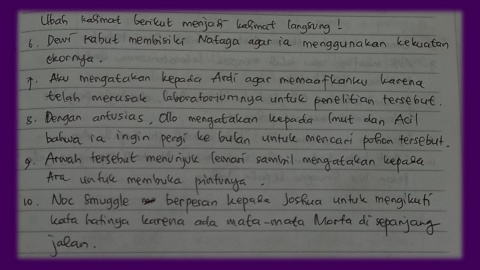 Ubah kalimat berikut menjadi kalimat langsung !
6. Dewi Kabut membisiki Nataga agar ia menggunakan kekuatan
ekornya.
7. Aku mengatakan kepada Ardi agar memaafkanku karena
telah merusak laboratoriumnya untuk penelitian tersebut.
8. Dengan antusias, Olo mengatakan kepada Imut dan Acil
bahwa ia ingin pergi ke bulan untuk mencari potion tersebut.
9. Arwah tersebut menunjuk lemari sambil mengatakan kepada
Ara untuk membuka pintunya.
10. Noc Smuggle berpesan kepada Joshua untuk mengikuti
kata hatinya karena ada mata-mata Morta di sepanjang
jalan.